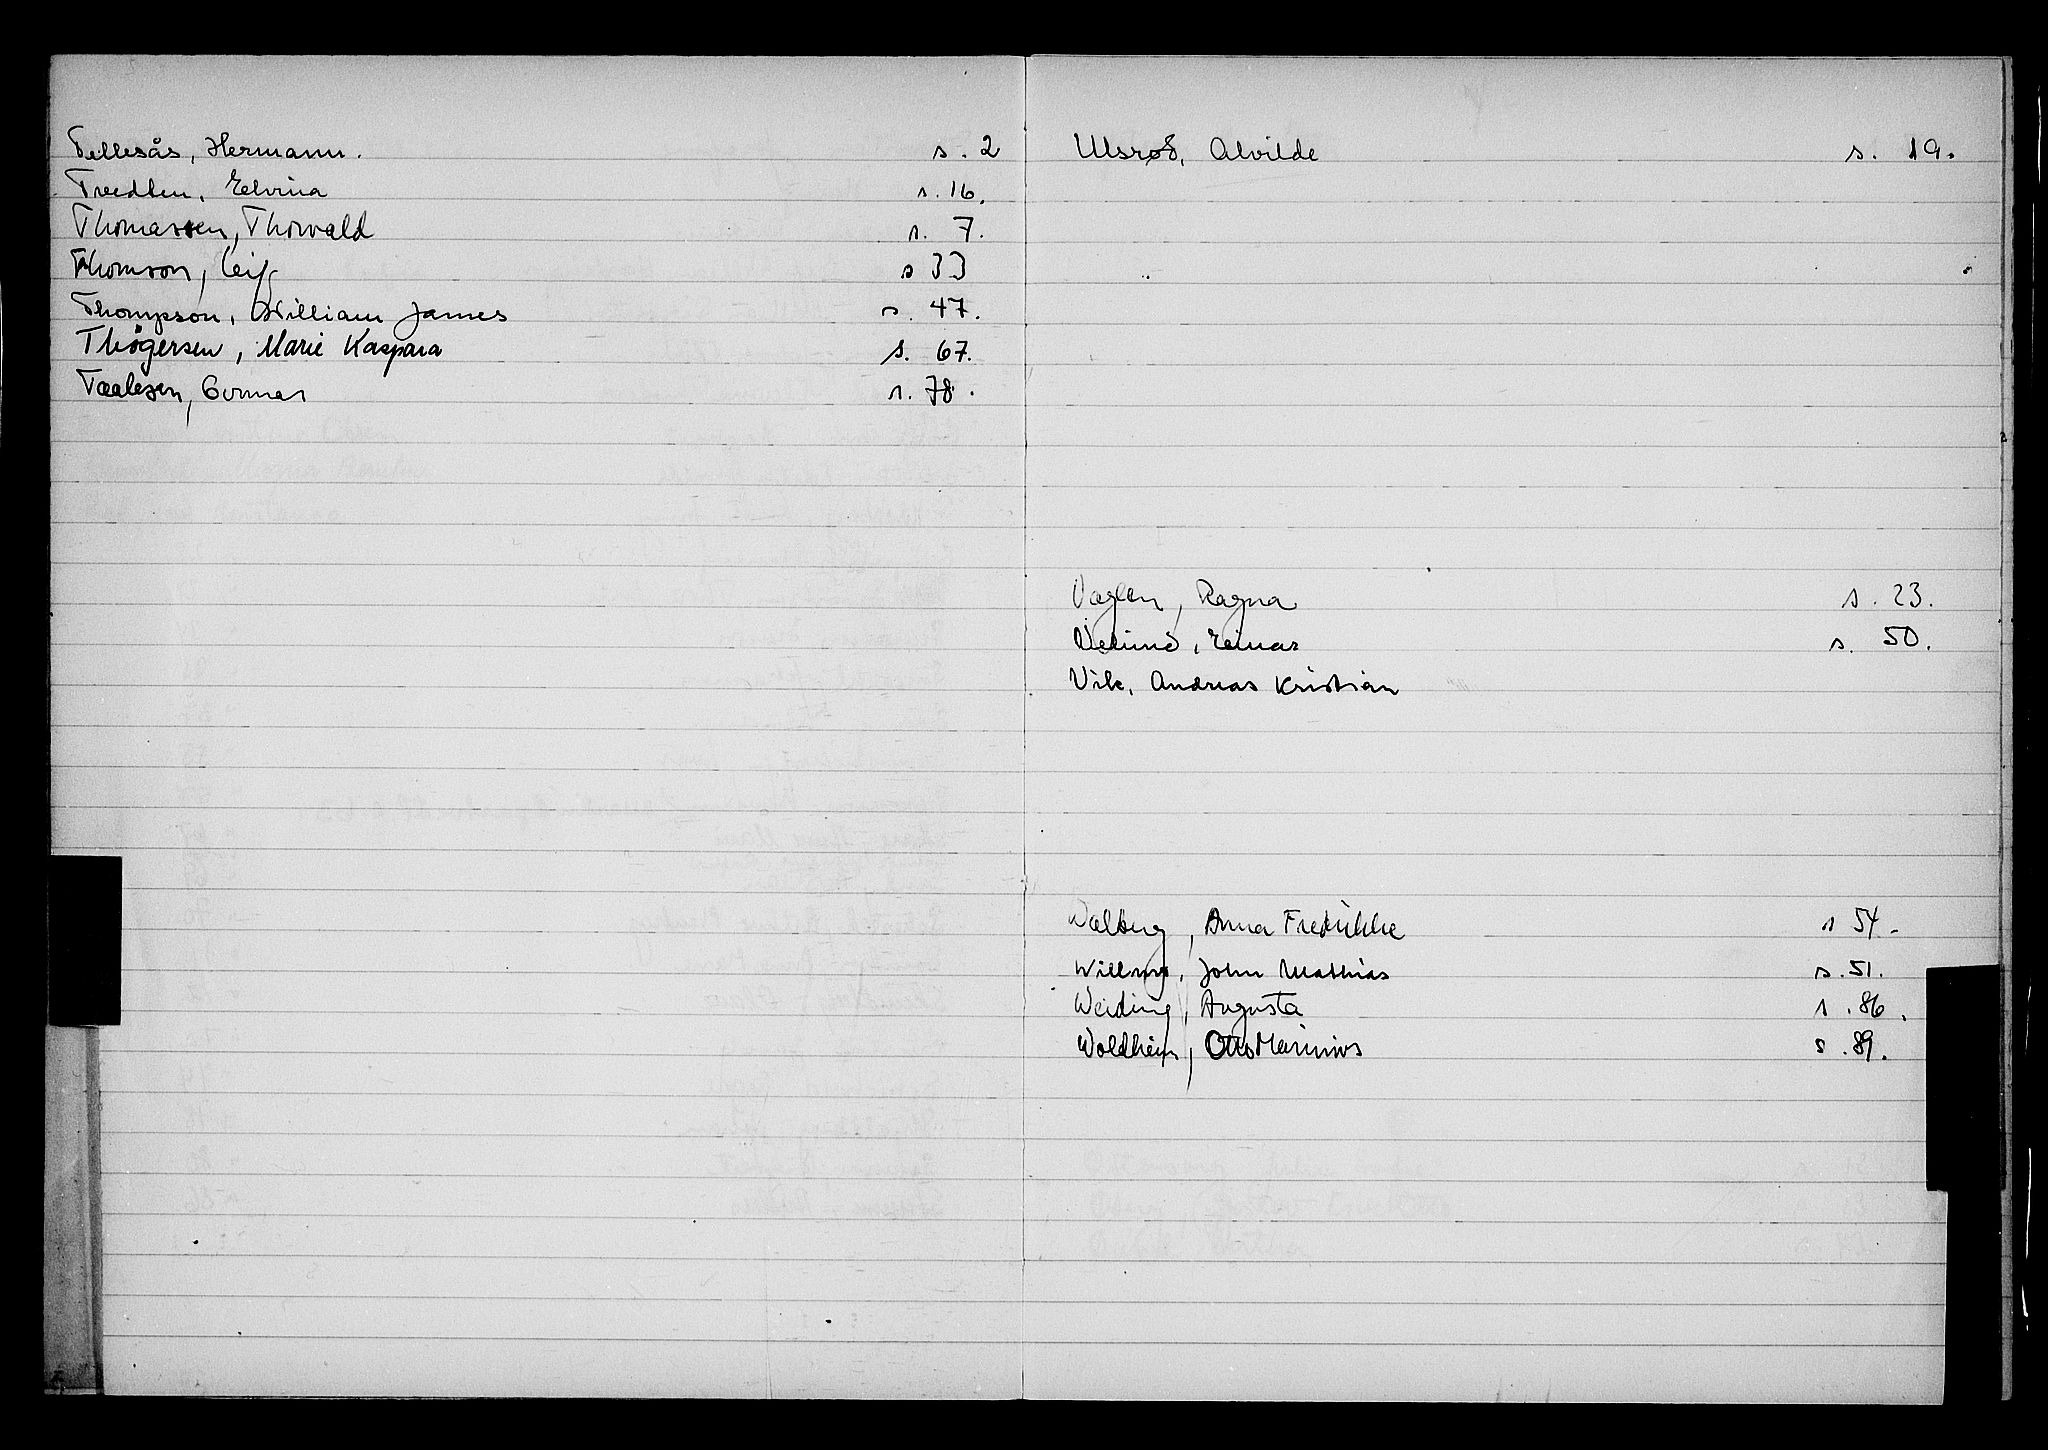 Tellesås, Hermann. s. 2
Tvedten, Elvina s. 16.
Thomassen, Thorvald s. 7.
Thomson, Leif s 33
Thompson, William James s. 47.
Thøgersen, Marie Kaspara s. 67.
Taalesen, Gunnar s. 78.
Ulsrød, Alvilde s. 19.
Vaglen, Ragna s. 23.
Velund, Einar s. 50.
Vik, Andreas Kristian
Walberg, Anna Fredrikke s 54.
John Mathias s. 51.
Weiding, Augusta s. 86.
Woldheim, Otto Marinius s. 89.